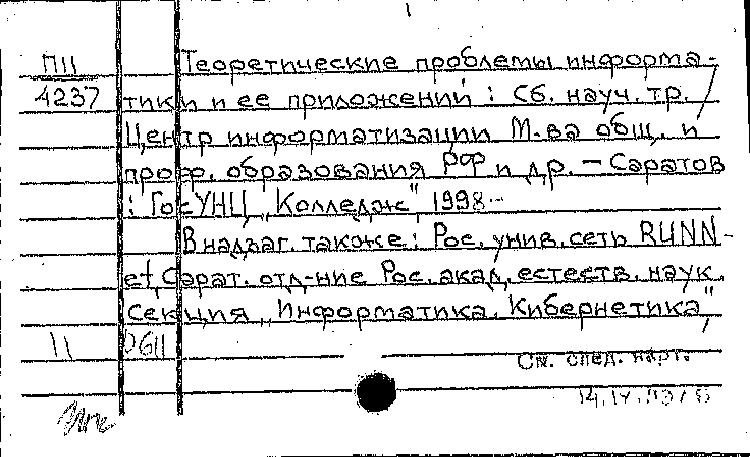 П11 Теоретические проблемы информа-
4237 тики и ее приложений : Сб. науч. тр. /
Центр информатизации М-ва общ. и
проф. образования РФ и др. – Саратов
: ГосУНЦ „Колледж", 1998-
В надзаг. также: Рос. унив. сеть RUNN-
et, Сарат. отд-ние Рос. акад. естеств. наук.
Секция „Информатика. Кибернетика"
11
См. след. карт.